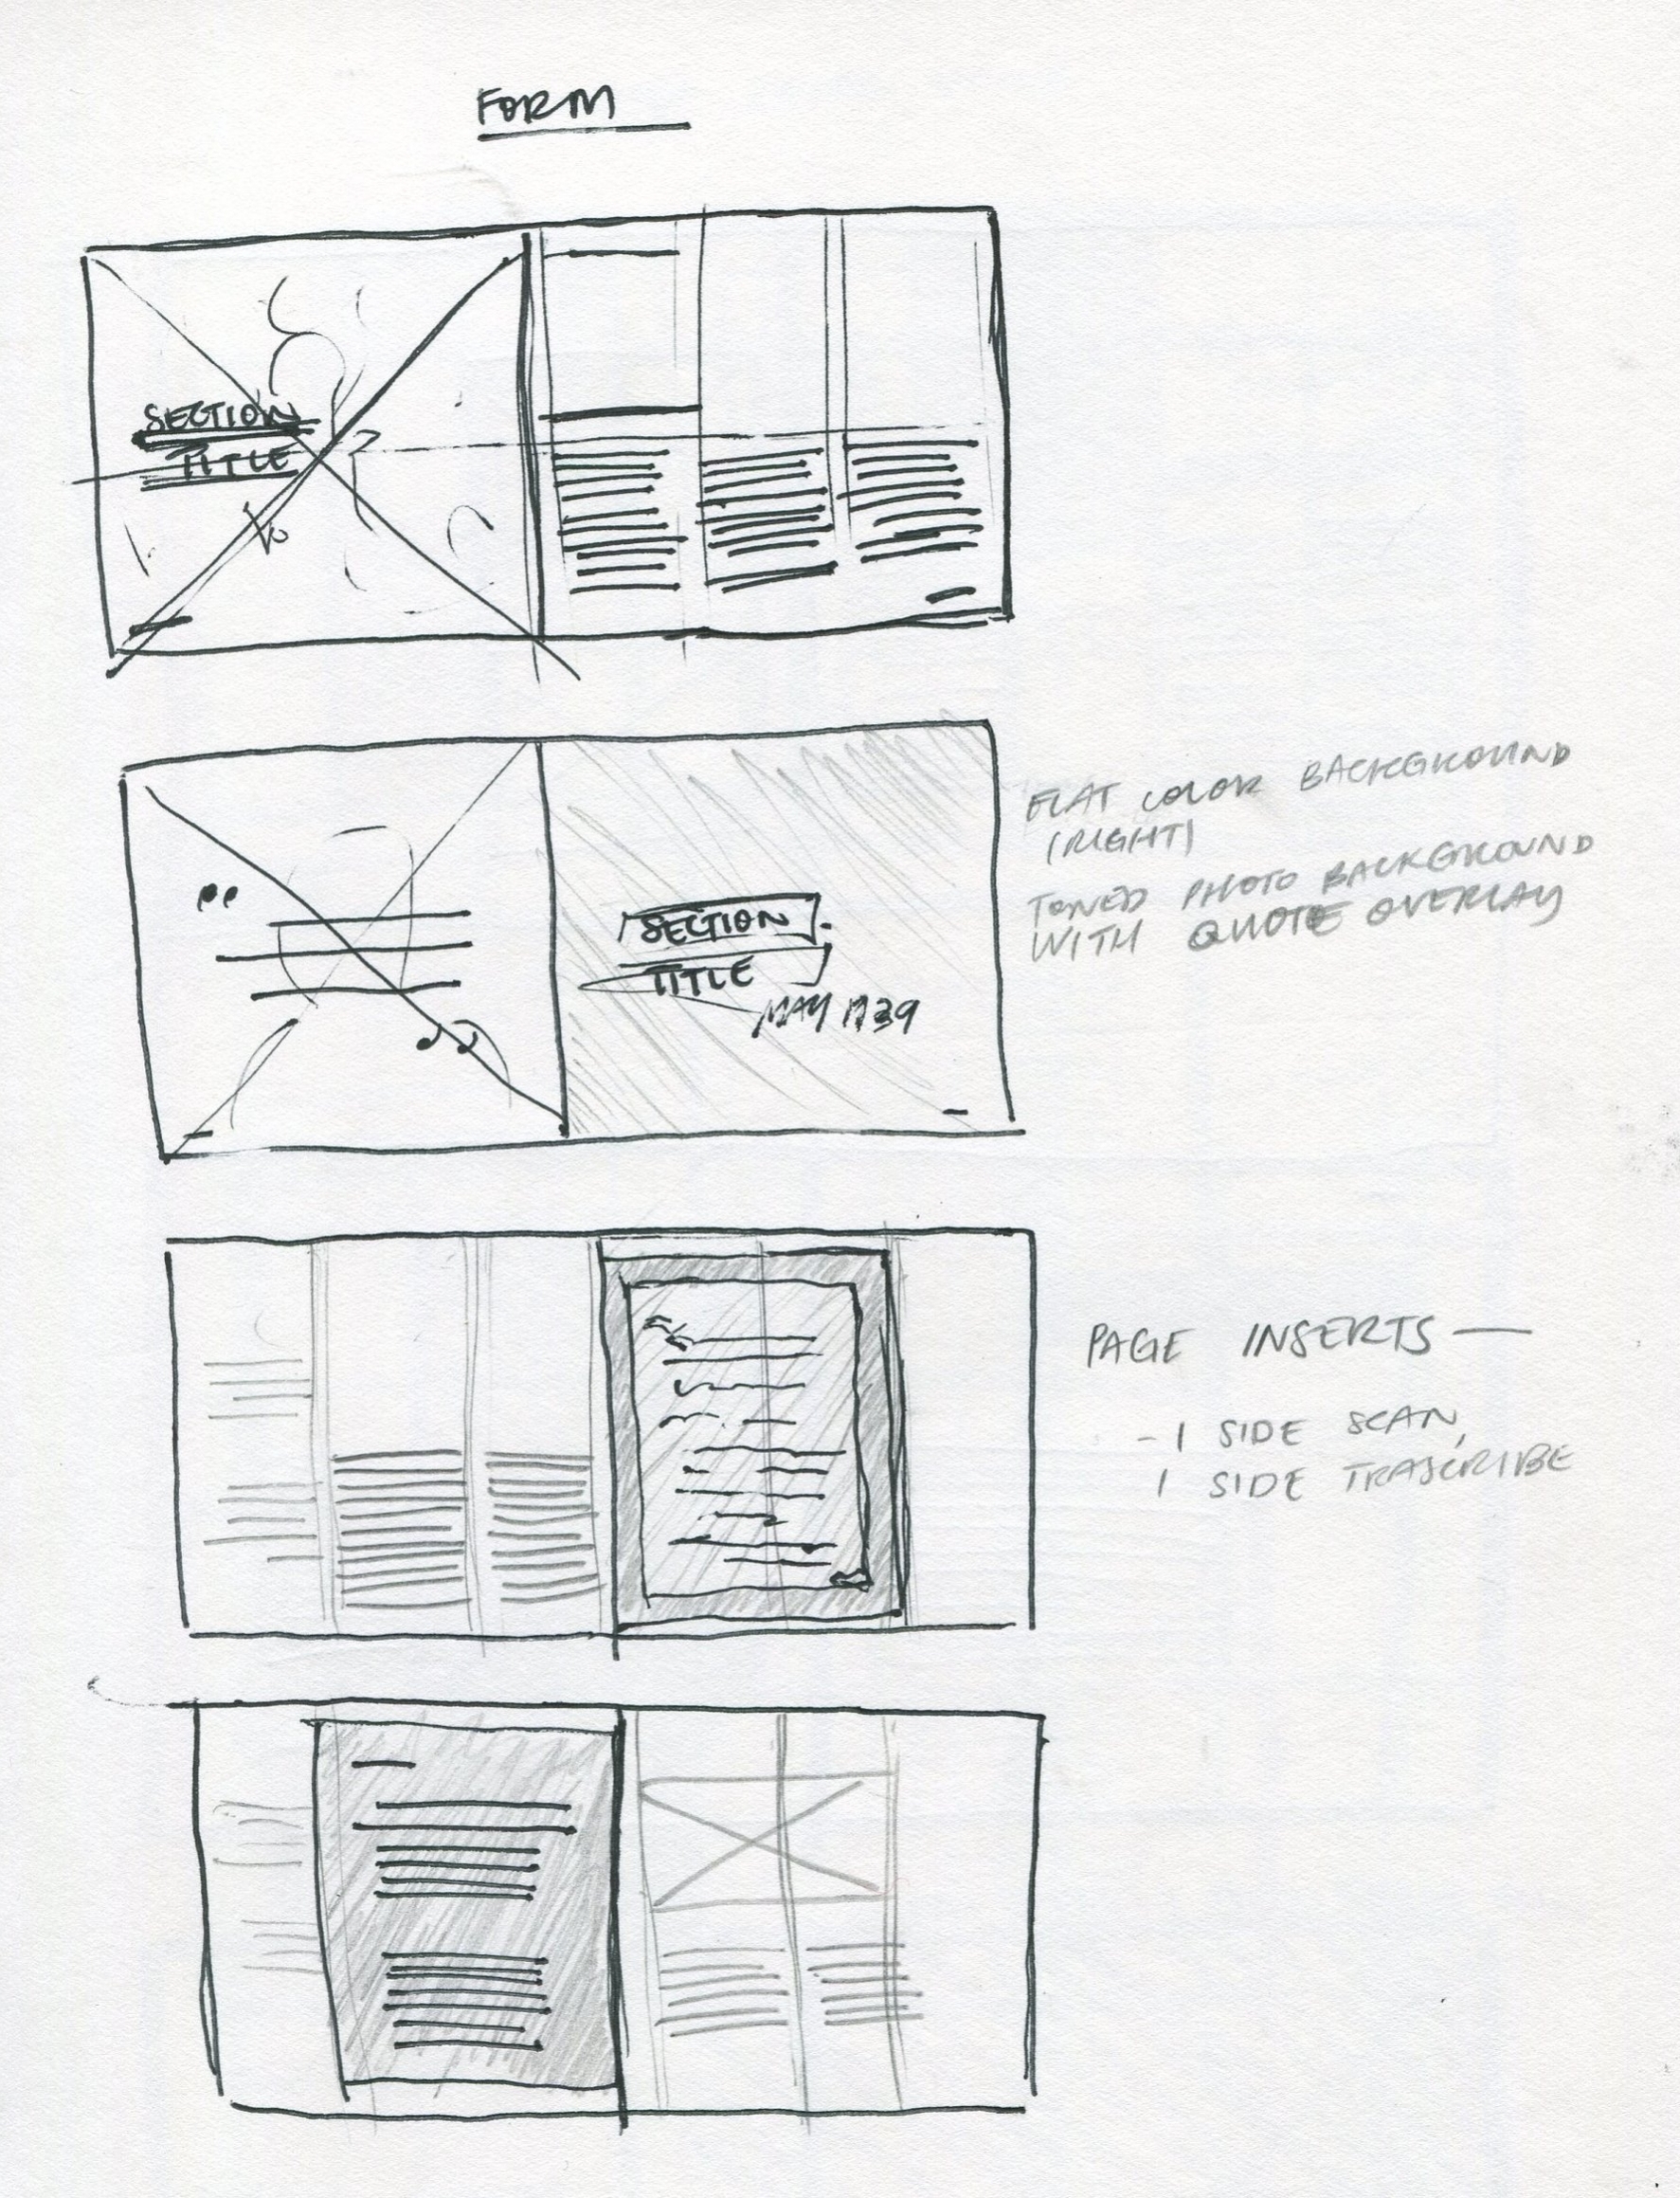 FORM
SECTION
TITLE
FLAT COLOR BACKGROUND
(RIGHT)
TONED PHOTO BACKGROUND
WITH QUOTE OVERLAY
SECTION
TITLE
MAY 1939
PAGE INSERTS —
- 1 SIDE SCAN,
1 SIDE TRASCRIBE